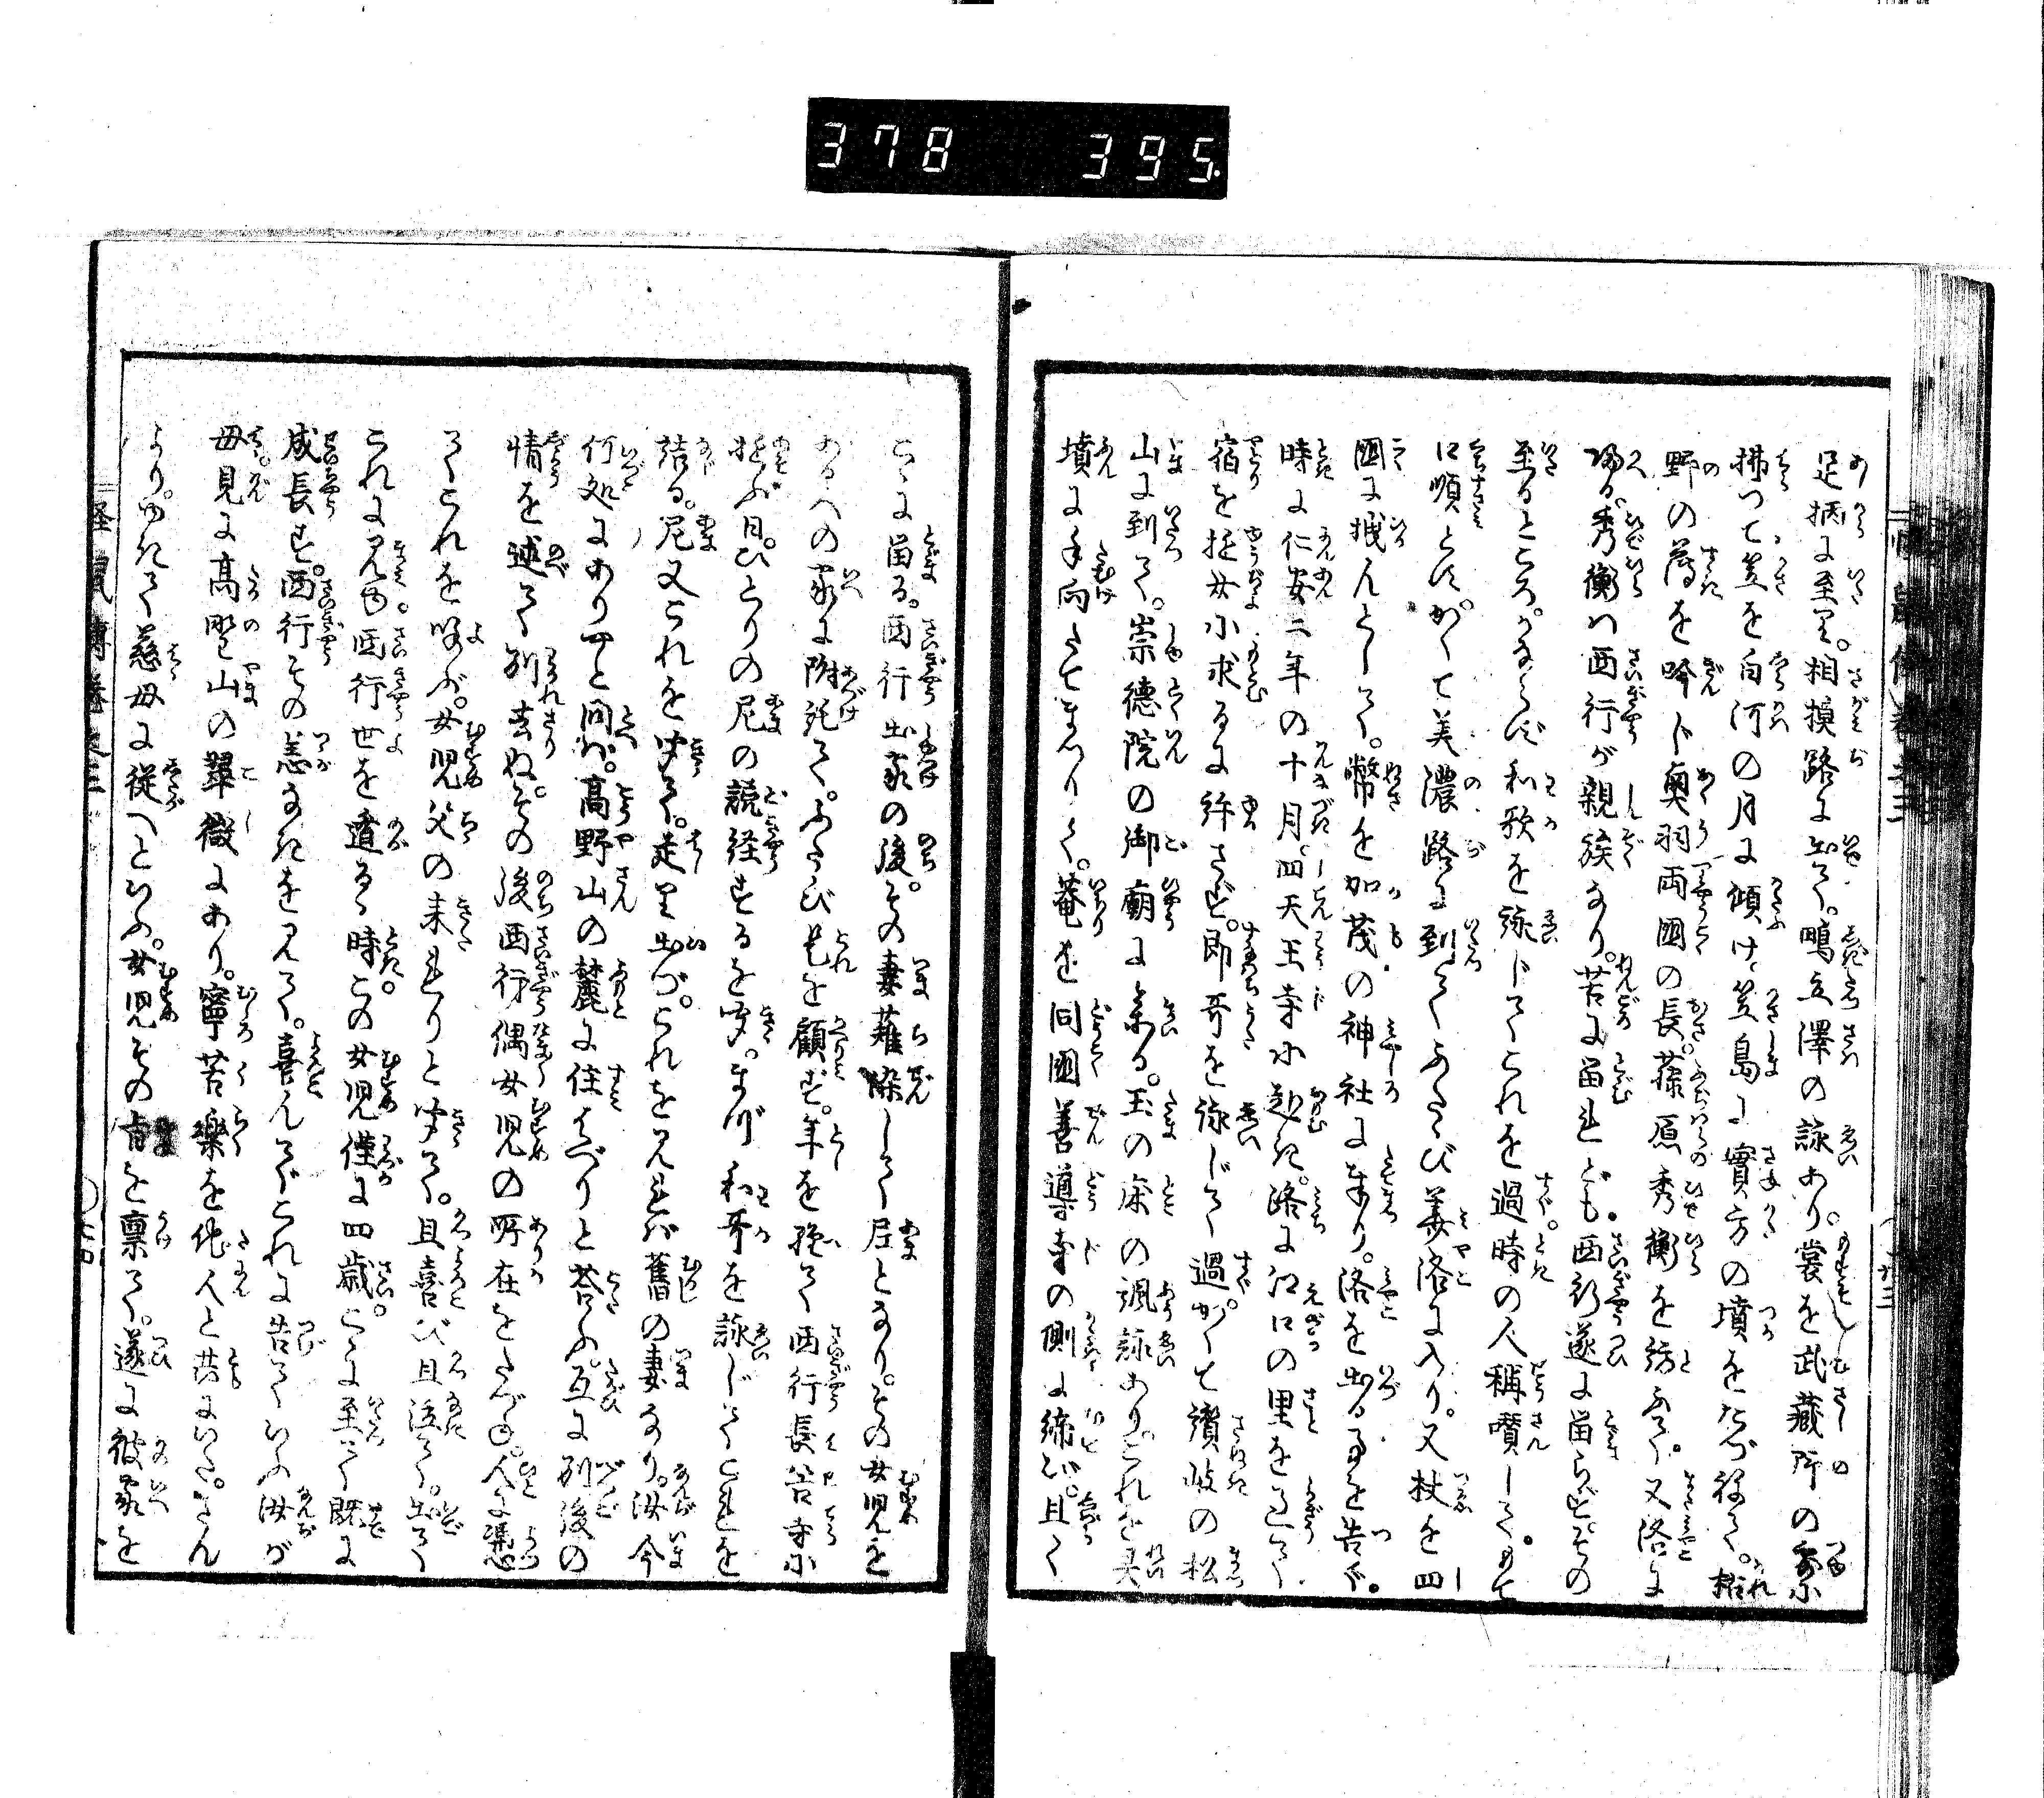 378 395
足柄に至り。相摸路に出て。鴫立澤の詠あり。裳を武藏野の露に
拂つて笠を白河の月に傾け。笠島に實方の墳をたづね得て。枯
野の薄を吟じ奥羽両國の長藤原秀衡を訪ふて。又洛に
帰る。秀衡は西行が親族なり。苦に畄れども。西行遂に畄らず。その
至るところ。かならず和歌を詠じてこれを過時の人稱嘆して。もて
口順とす。かくて美濃路に到てふたゝび華洛に入り。又杖を四
國に拽んとして。幣を加茂の神社に奉り。洛を出るを告ぐ。
時に仁安二年の十月。四天王寺に趣き。路に江口の里を過て
宿を妓女に求るに許さず。即哥を詠じて過ぐ。かくて讃岐の松
山に到て。崇德院の御廟に参る。玉の床の諷詠あり。これを
墳に手向たてまつりて。菴を同國善導寺の側に締び。且く
こゝに畄る。西行出家の後。その妻薙染して尼となり。その女児を
あるへの家に附託て。ふたゝび是を顧ず。年を經て西行長谷寺に
遊ぶ日。ひとりの尼の読経するを聞。まづ和哥を詠じてこれを
詰る。尼又これを聞て。走り出づ。これを見れば舊の妻なり。汝今
何処にありやと問ば。高野山の麓に住はべりと荅ふ。互に別後の
情を述て別去ぬ。その後西行偶女児の所在をたづね。人に憑
てこれを呼ぶ。女児父の来れりと聞て。且喜び且泣て。出て
これに見ゆ。西行世を遁るゝ時。この女児僅に四歳。こゝに至て既に
成長す。西行その恙なきを見て。喜んでこれに告ていふ汝が
母見に高野山の翠微にあり。寧苦樂を他人と共にいた。さん
より。ゆきて慈母に従へといふ。女児その旨を稟て。遂に彼家を